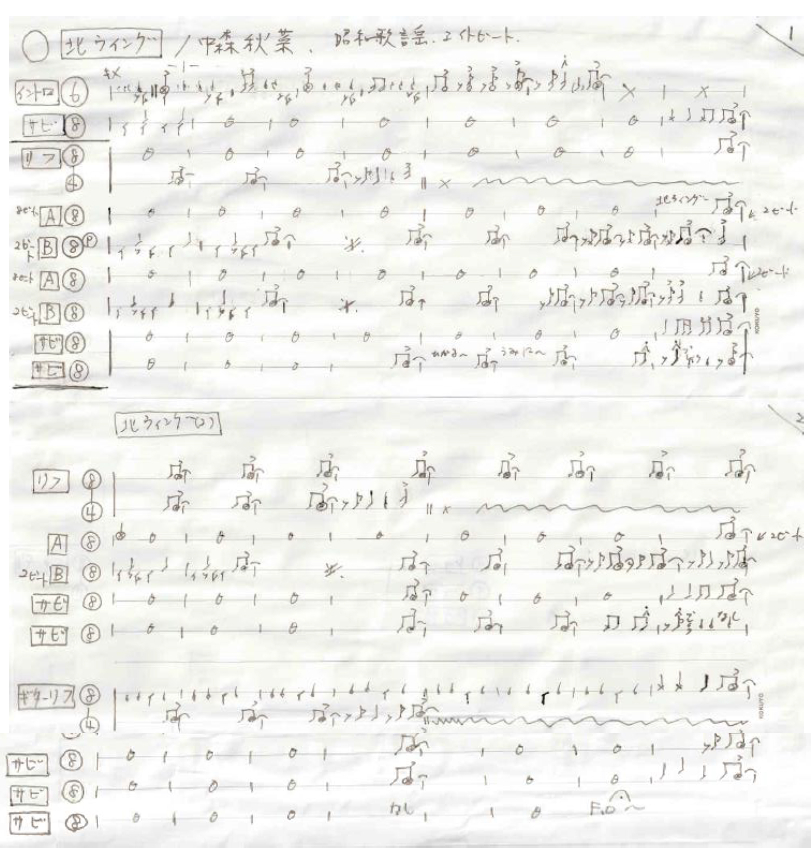 北ウイング / 中森秋菜. 昭和歌謡. エイトビート. 1
イントロ 6
サビ 8
リフ 8
4
8ビート A 8 北ウイング〜 ←2ビート
2ビート B 8 P
8ビート A 8 ←2ビート
2ビート B 8
サビ 8
サビ 8
KOKUYO
北ウイング(2) 2
リフ 8
4
A 8 ←2ビート
2ビート B 8
サビ 8
サビ 8 なし
ギターリフ 8
4
KOKUYO
サビ 8
サビ 8
サビ 8 なし F.O〜